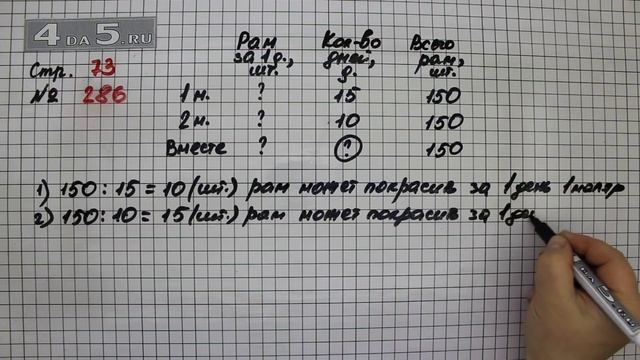 4 DA 5.RU
Стр. 73
№ 286
Рам за 1 д., шт.
Кол-во дней, д.
Всего рам, шт.
1 м. ? 15 150
2 м. ? 10 150
Вместе ? ? 150
1) 150 : 15 = 10 (шт.) рам может покрасить за 1 день 1 маляр
2) 150 : 10 = 15 (шт.) рам может покрасить за 1 де